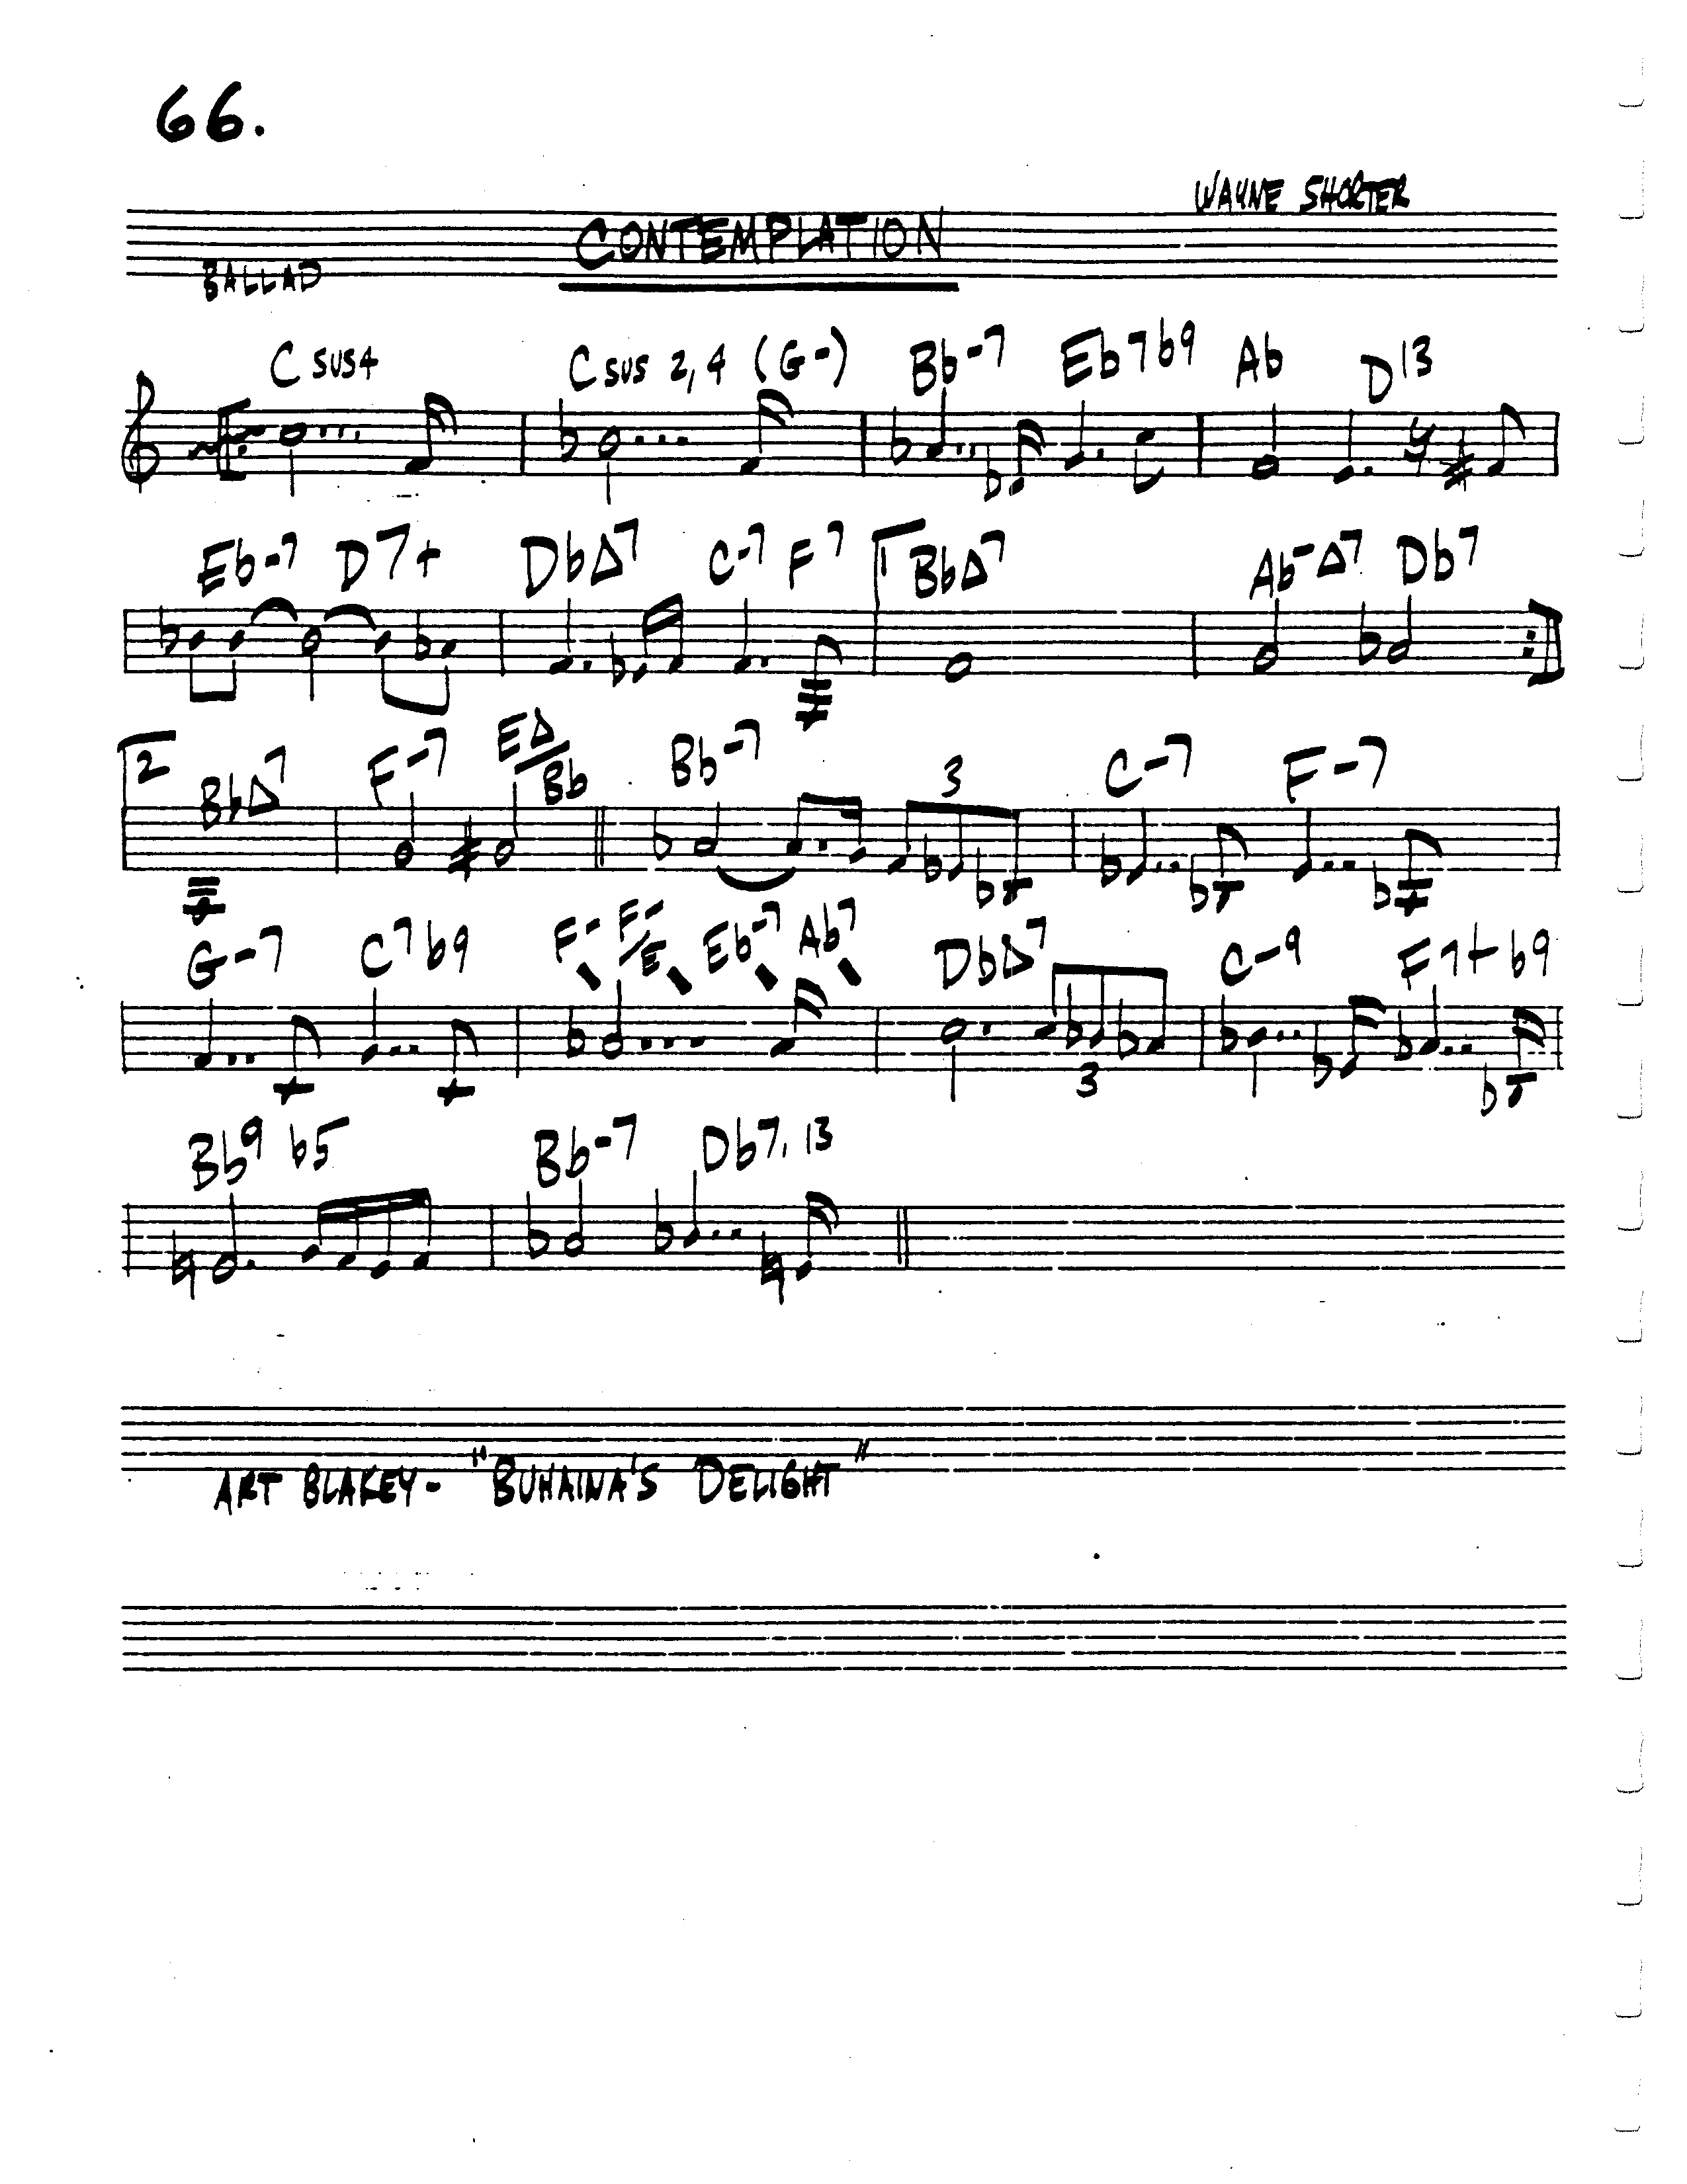 66.
WAYNE SHORTER
CONTEMPLATION
BALLAD
C sus4 C sus 2,4 (G-) Bb-7 Eb7b9 Ab D13
Eb-7 D7+ DbΔ7 C-7 F7 1 BbΔ7 Ab-Δ7 Db7
2 BbΔ7 F-7 EΔ/Bb Bb-7 3 C-7 F-7
G-7 C7b9 F- F-/E Eb-7 Ab7 DbΔ7 C-9 F7+b9
3
Bb9 b5 Bb-7 Db7,13
ART BLAKEY- "BUHAINA'S DELIGHT"